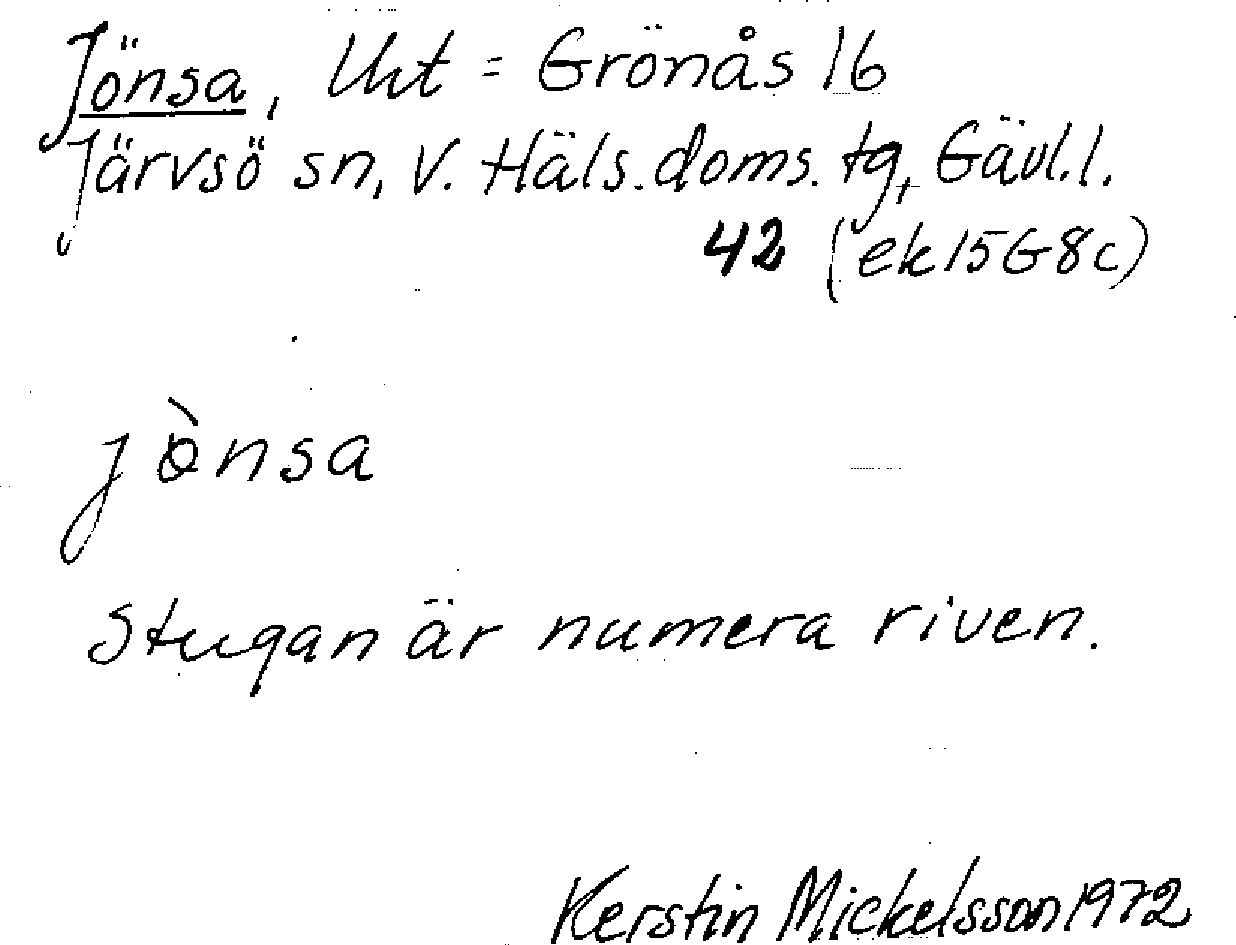 Jönsa, Uht = Grönås 16
Järvsö sn, V. Häls. doms. tg, Gävl. l.
42 (ek 15G8c)
jònsa
Stugan är numera riven.
Kerstin Mickelsson 1972